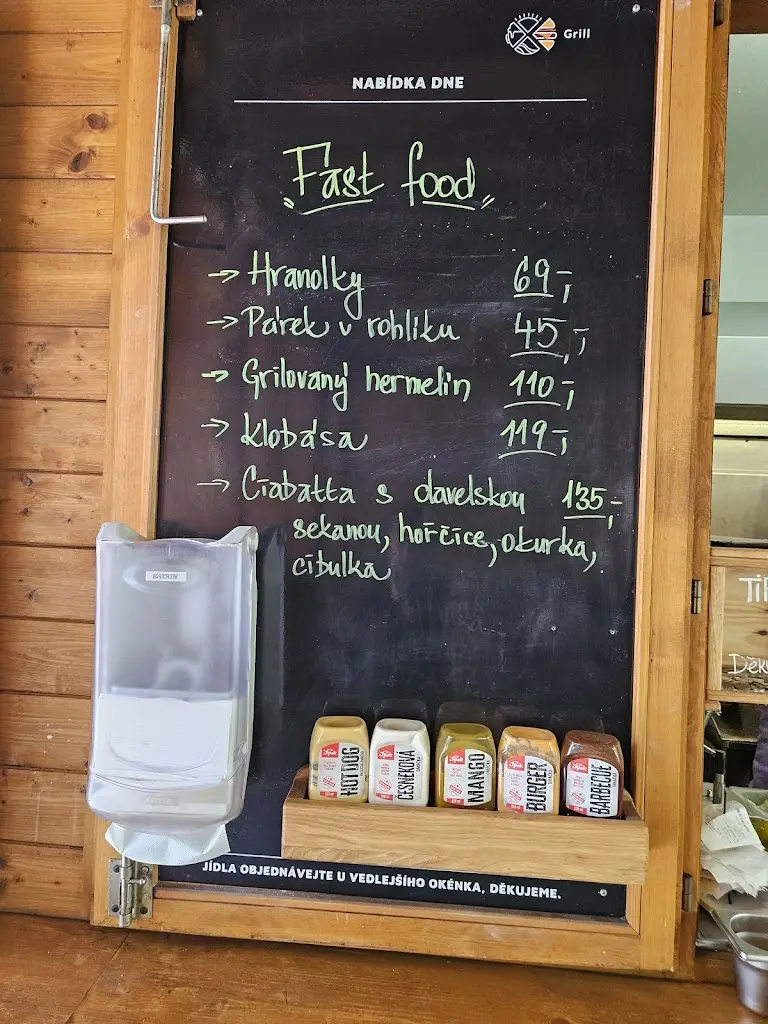 Grill
NABÍDKA DNE
"Fast food"
→ Hranolky 69,-
→ Párek v rohlíku 45,-
→ Grilovaný hermelín 110,-
→ Klobása 119,-
→ Ciabatta s davelskou 135,-
sekanou, hořčice, okurka,
cibulka
KATRIN
HOT DOG
ČESNEKOVÁ
MANGO
BURGER
BARBECUE
JÍDLA OBJEDNÁVEJTE U VEDLEJŠÍHO OKÉNKA, DĚKUJEME.